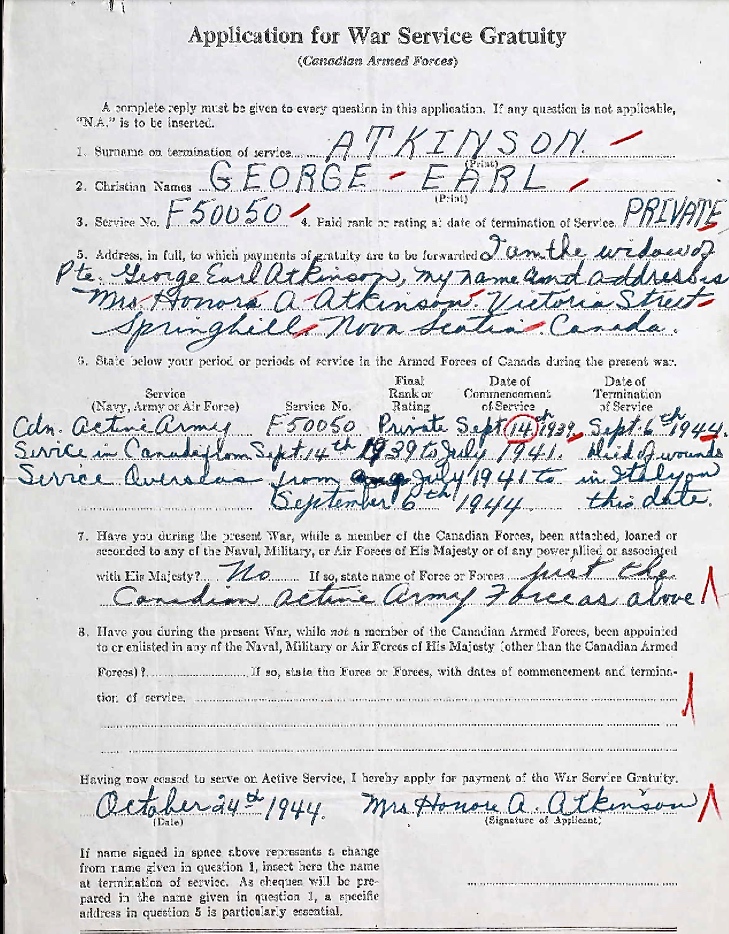 Application for War Service Gratuity
(Canadian Armed Forces)
A complete reply must be given to every question in this application. If any question is not applicable,
"N.A." is to be inserted.
1. Surname on termination of service ATKINSON.
(Print)
2. Christian Names GEORGE - EARL
(Print)
3. Service No. F50050 4. Paid rank or rating at date of termination of Service. PRIVATE
5. Address, in full, to which payments of gratuity are to be forwarded I am the widow of
Pte. George Earl Atkinson, my name and address is
Mrs. Honora A. Atkinson, Victoria Street
Springhill, Nova Scotia. Canada.
6. State below your period or periods of service in the Armed Forces of Canada during the present war.
Service (Navy, Army or Air Force) Service No. Final Rank or Rating Date of Commencement of Service Date of Termination of Service
Cdn. Active Army F50050 Private Sept. 14th 1939. Sept. 6th 1944.
Service in Canada from Sept 14th 1939 to July 1941. Died of wounds
Service Overseas from July 1941 to in Italy on
September 6th 1944 this date.
7. Have you during the present War, while a member of the Canadian Forces, been attached, loaned or
seconded to any of the Naval, Military, or Air Forces of His Majesty or of any power allied or associated
with His Majesty? No If so, state name of Force or Forces just the
Canadian active Army Force as above
8. Have you during the present War, while not a member of the Canadian Armed Forces, been appointed
to or enlisted in any of the Naval, Military or Air Forces of His Majesty (other than the Canadian Armed
Forces)? If so, state the Force or Forces, with dates of commencement and termina-
tion of service.
Having now ceased to serve on Active Service, I hereby apply for payment of the War Service Gratuity.
October 24th 1944. Mrs Honora A. Atkinson
(Date) (Signature of Applicant)
If name signed in space above represents a change
from name given in question 1, insert here the name
at termination of service. As cheques will be pre-
pared in the name given in question 1, a specific
address in question 5 is particularly essential.